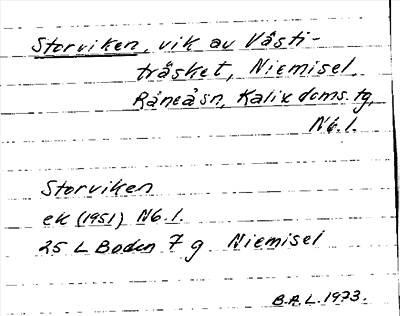 Storviken, vik av Västi-
träsket, Niemisel,
Råneå sn, Kalix doms. tg,
Nb. l.
Storviken
ek (1951) Nb. l.
25 L Boden 7 g Niemisel
B.A.L. 1973.